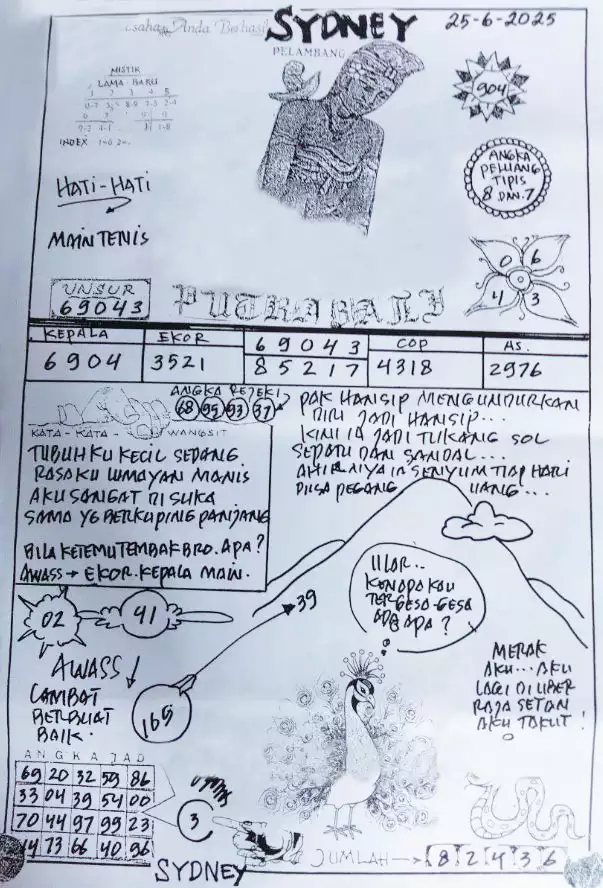 Anda Berhasil
SYDNEY
25-6-2025
PELAMBANG
MISTIK
LAMA-BARU
INDEX
904
HATI-HATI
MAIN TENIS
ANGKA
PELUANG
TIPIS
8 DAN 7
0 6
4 3
UNSUR
69043
PUTRA BALI
KEPALA EKOR 69043 COP AS.
6904 3521 85217 4318 2976
ANGKA REJEKI
68 95 93 37
KATA-KATA WANGSIT
TUBUHKU KECIL SEDANG
RASAKU LUMAYAN MANIS
AKU SANGAT DI SUKA
SAMA YG BERKUPING PANJANG
BILA KETEMU TEMBAK BRO. APA?
AWASS → EKOR. KEPALA MAIN.
PAK HANSIP MENGUNDURKAN
DIRI JADI HANSIP...
KINI IA JADI TUKANG SOL
SEPATU DAN SANDAL...
AHIRNIYA IA SENYUM TIAP HARI
BISA PEGANG UANG...
02
41
39
ULAR..
KENAPA KAU
TERGESA-GESA
ADA APA?
AWASS
LAMBAT
BERBUAT
BAIK.
165
MERAK
AKU...AKU
LAGI DI UBER
RAJA SETAN
AKU TAKUT!
ANGKA JAD
69 20 32 59 86
33 04 39 54 00
70 44 97 99 23
14 73 66 40 96
3
JUMLAH → 8 2 4 3 6
SYDNEY